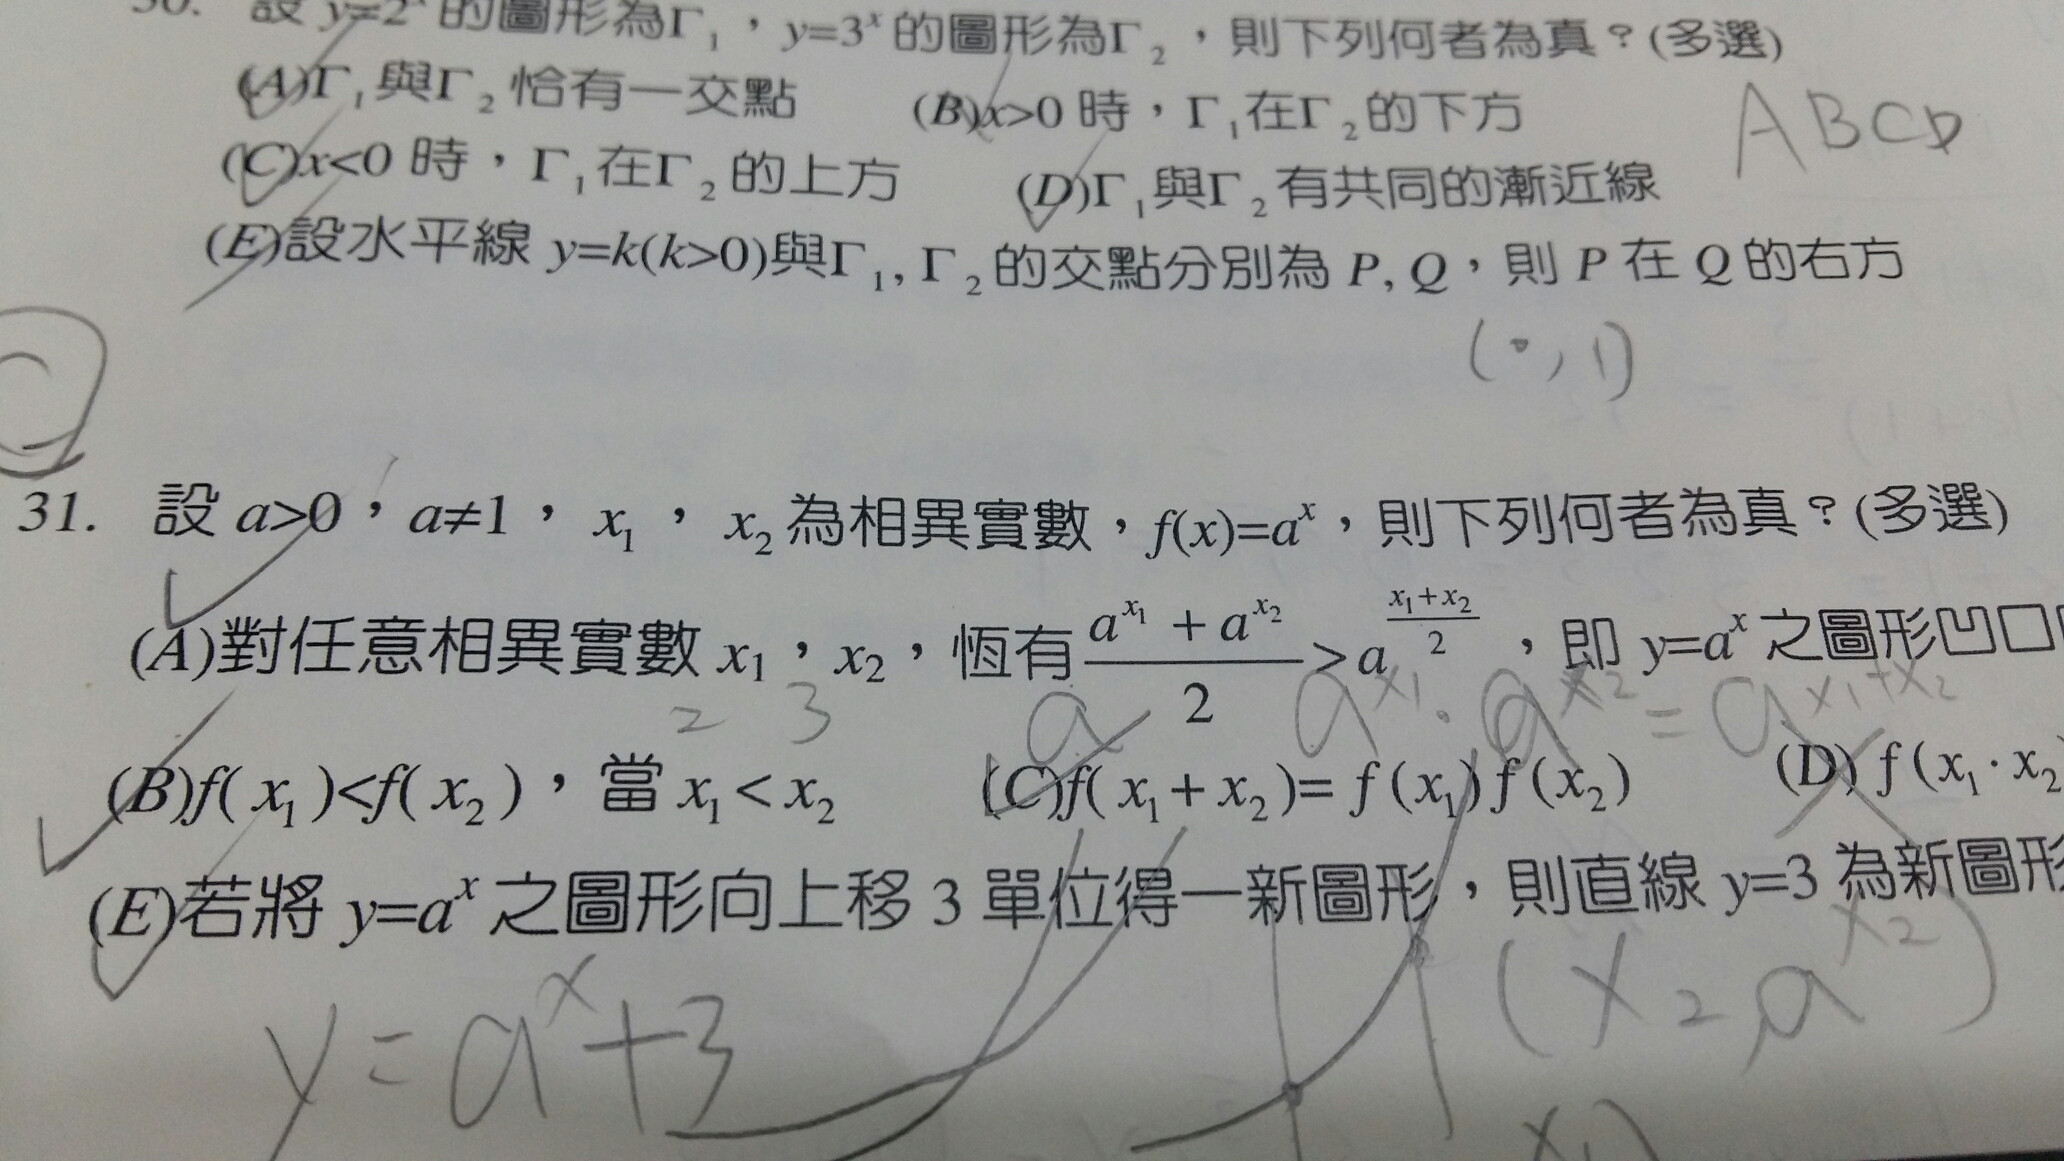 30. 設 y=2ˣ 的圖形為Γ₁，y=3ˣ 的圖形為Γ₂，則下列何者為真？(多選)
(A)Γ₁與Γ₂ 恰有一交點 (B)x>0 時，Γ₁在Γ₂的下方
ABCD
(C)x<0 時，Γ₁在Γ₂的上方 (D)Γ₁與Γ₂有共同的漸近線
(E)設水平線 y=k(k>0)與Γ₁, Γ₂的交點分別為 P, Q，則 P 在 Q 的右方
(0,1)
31. 設 a>0，a≠1， x₁， x₂為相異實數，f(x)=aˣ，則下列何者為真？(多選)
(A)對任意相異實數 x₁，x₂，恆有 (a^{x₁} + a^{x₂})/2 > a^{(x₁+x₂)/2}，即 y=aˣ 之圖形凹口
2 3 a a^{x₁}·a^{x₂}=a^{x₁+x₂}
(B)f( x₁ )<f( x₂ )，當 x₁ < x₂ (C)f( x₁ + x₂ )= f (x₁) f (x₂) (D) f (x₁·x₂
(E)若將 y=aˣ 之圖形向上移 3 單位得一新圖形，則直線 y=3 為新圖形
y=aˣ+3 (x₂, a^{x₂})
x₁)